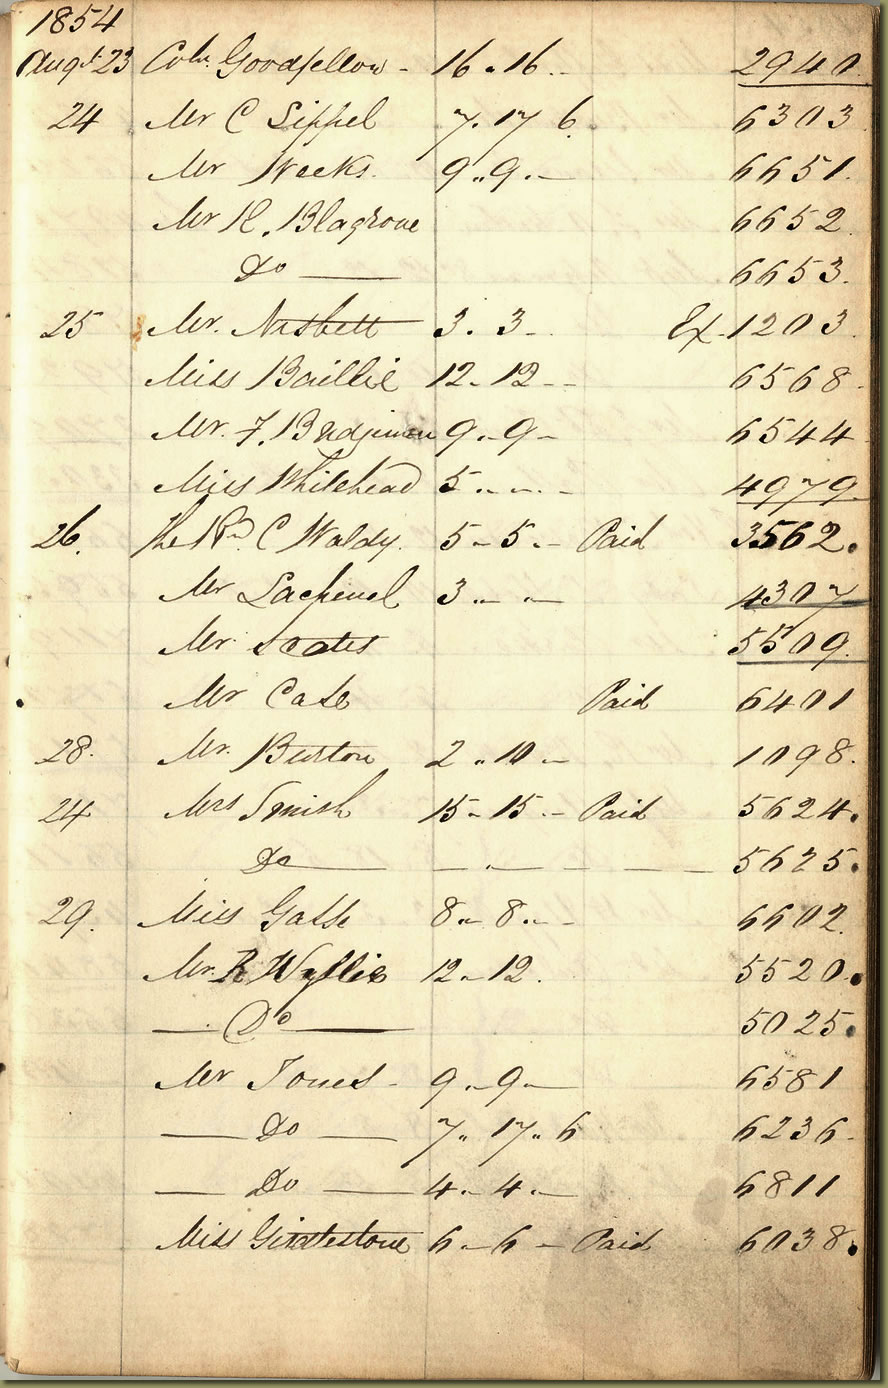 1854
Augst 23 Coln. Goodfellow - 16 .. 16 .. 2940.
24 Mr C Sippel 7. 17 6. 6303
Mr Weeks. 9 .. 9 .. - 6651.
Mr H. Blagrove 6652.
Do — 6653.
25 Mr. Nisbett 3. 3 - Ex. 1203.
Miss Baillie 12 .. 12 - - 6568.
Mr. F. 9 .. 9 - 6544
Miss Whitehead 5 .. .. - 4979.
26. The Rd. C Waldy. 5 - 5 .. - Paid 3562.
Mr Lachenal 3 .. .. - 4307
Mr. Scates 5509.
Mr Case Paid 6401
28. Mr. Burton 2 .. 10 .. - 1098.
24 Mrs Smith 15 - 15 .. - Paid 5624.
Do — — .. — — — 5625.
29. Miss 8 .. 8 .. - 6602.
Mr. R Wyllie 12 .. 12. 5520.
— Do — 5025.
Mr Jones - 9 .. 9 .. - 6581
— Do — 7 .. 17 .. 6 6236.
— Do — 4 .. 4 .. - 6811
Miss 6 .. 6 - Paid 6038.